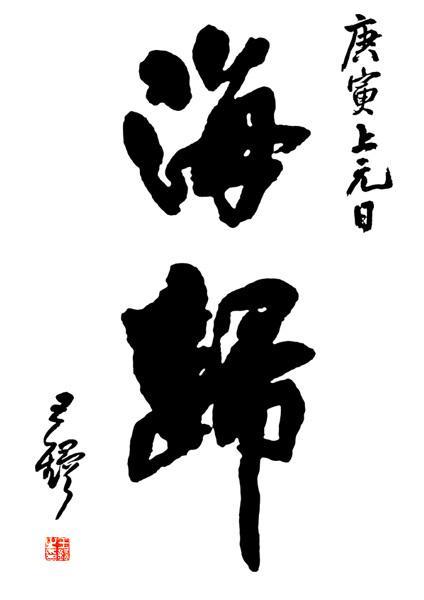 庚寅上元日
海歸
王鏞